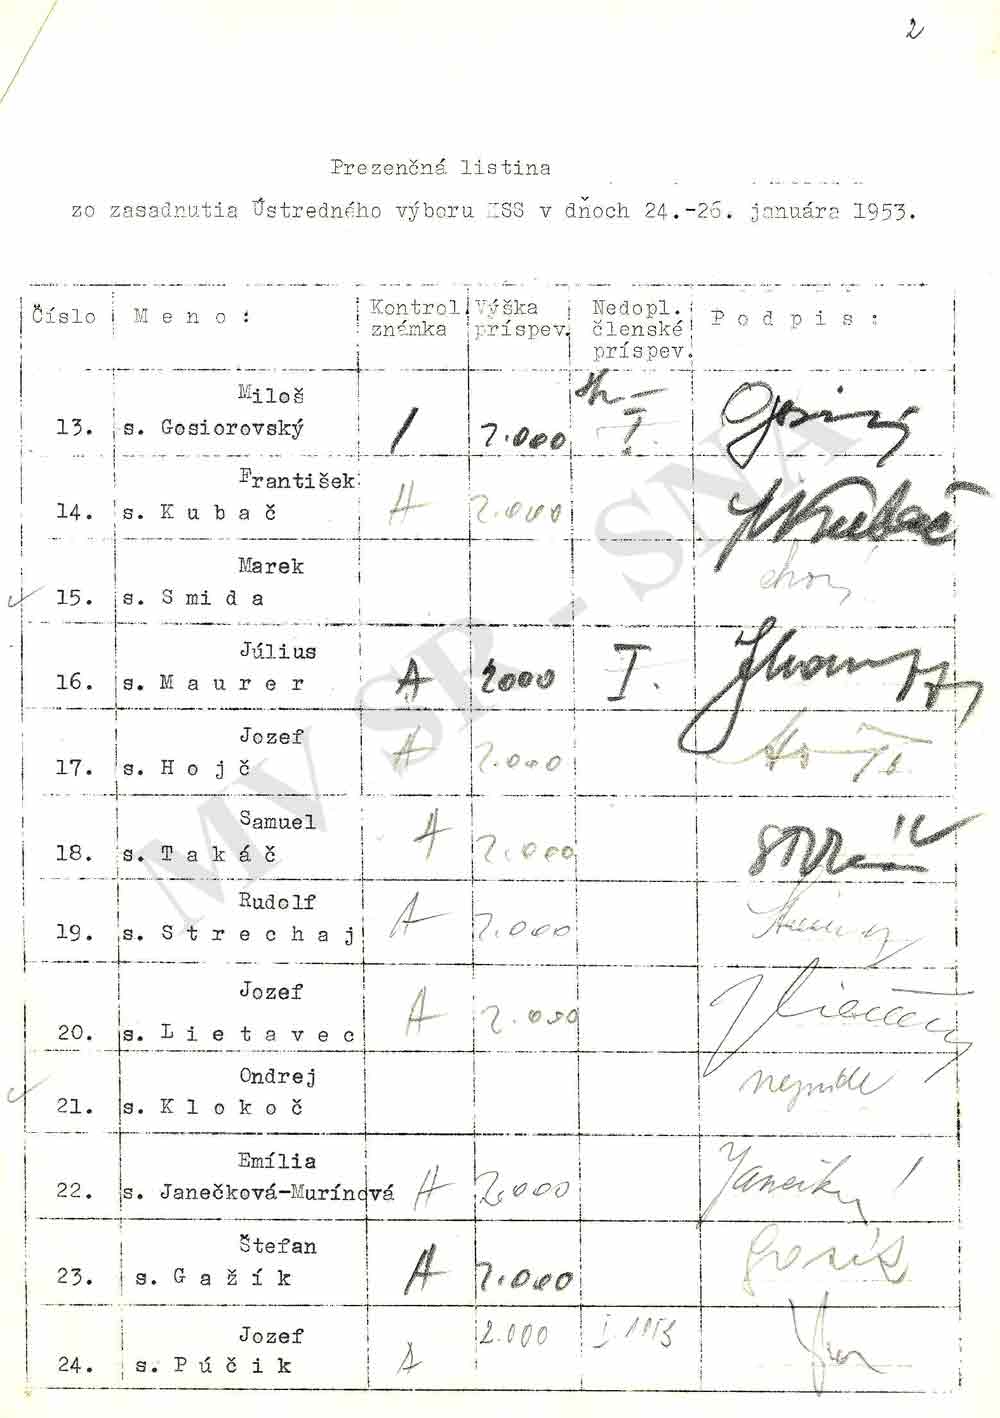 2
Prezenčná listina
zo zasadnutia Ústredného výboru KSS v dňoch 24.-26. januára 1953.
Číslo M e n o : Kontrol. známka Výška príspev. Nedopl. členské príspev. P o d p i s :
Miloš
13. s. Gosiorovský / 2.000 I.
František
14. s. K u b a č A 2.000 Kubač
Marek
15. s. S m i d a chorý
Július
16. s. M a u r e r A 2000 I.
Jozef
17. s. H o j č A 2.000
Samuel
18. s. T a k á č A 2.000
Rudolf
19. s. S t r e c h a j A 2.000
Jozef
20. s. L i e t a v e c A 2.000
Ondrej
21. s. K l o k o č nepríde
Emília
22. s. Janečková-Murínová A 2.000
Štefan
23. s. G a ž í k A 2.000
Jozef
24. s. P ú č i k A 2.000 I 1953
MV SR - SNA